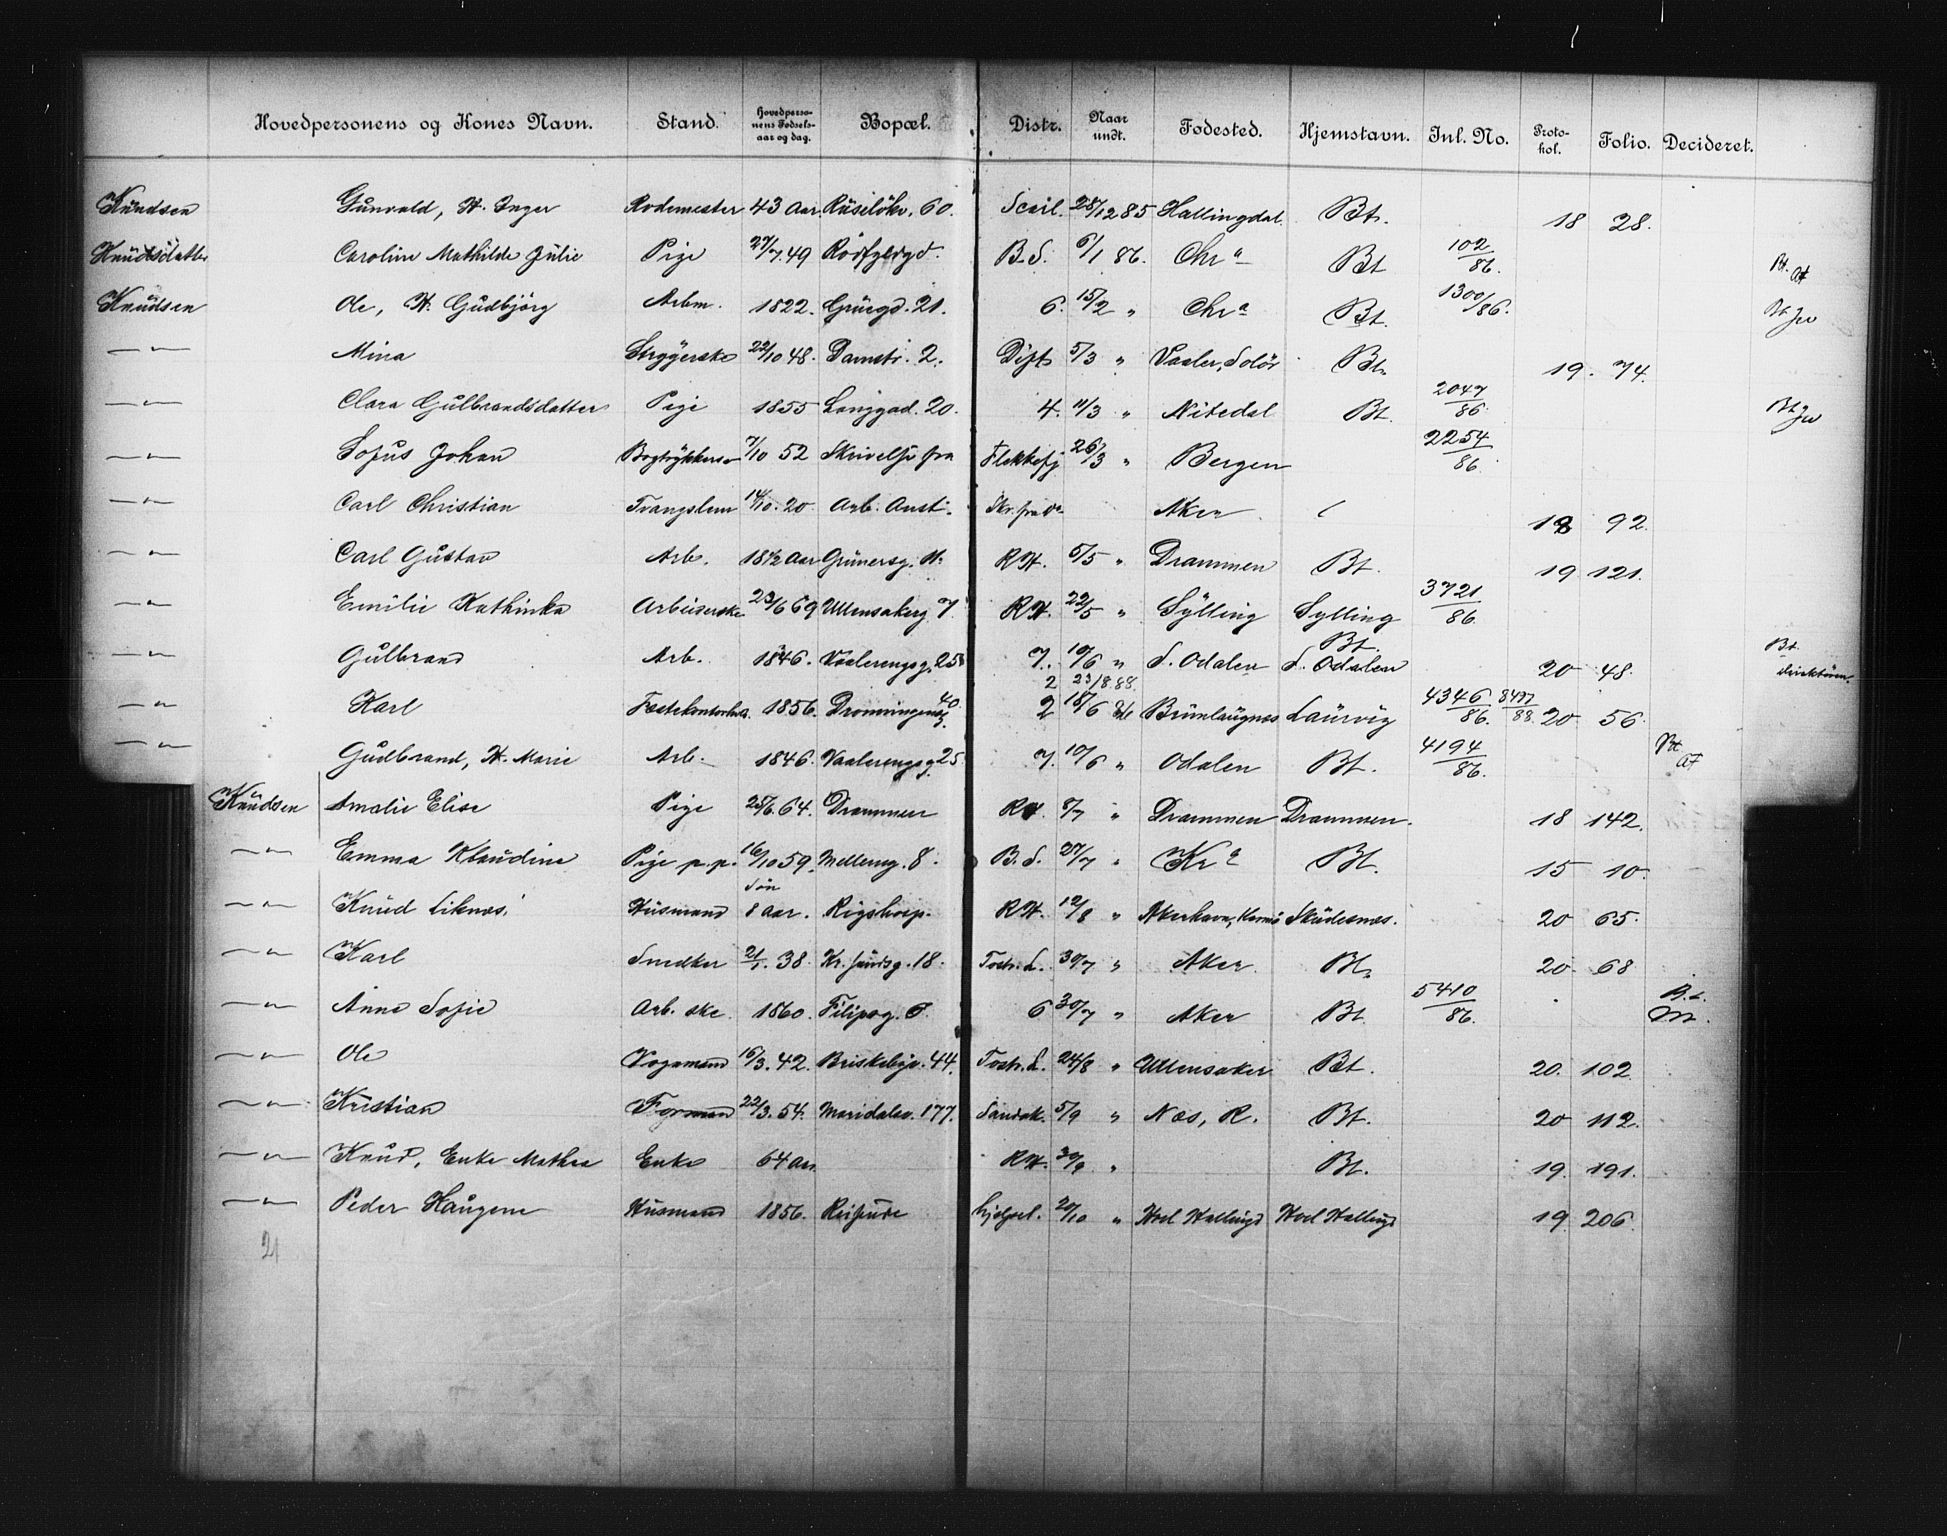 Hovedpersonens og Kones Navn. Stand. Hovedpersonens Fødselsaar og dag. Bopæl. Distr. Naar undt. Fødested. Hjemstavn. Inl. No. Protokol. Folio. Decideret.
Knudsen Gunvald, H. Inger Rodemester 43 Aar Ruseløkv. 60. 28/12 85 Hallingdal Bt. 18 28.
Knudsdatter Caroline Mathilde Julie Pige 27/7 49 B.S. 6/1 86. Chr a Bt 102/86. Bt.
Knudsen Ole, H. Gudbjørg Arbm. 1822. Grüegd. 21. 6. 15/2 " Chr a Bt. 1300/86. Bt
— " — Mina Strygerske 22/10 48. Damstr. 2. Dist 5/3 " Vaaler, Solør Bt. 19. 74.
— " — Clara Gulbrandsdatter Pige 1855 Langgad. 20. 4. 11/3 " Nitedal Bt. 2047/86. Bt
— " — Sofus Johan 7/10 52 Skrivelse fra Flekkefj 26/3 " Bergen 2254/86.
— " — Carl Christian Tvangslem 14/10. 20 Arb. Anst. Skr. fra Do Aker 18 92.
— " — Carl Gustav Arb. 18 1/2 Aar Grünersg. 11. RH. 5/5 " Drammen Bt. 19 121.
— " — Emilie Kathinka Arbeiderske 23/6 69 Ullensakerg 7. RH. 22/5 " Sylling Sylling 3721/86.
— " — Gulbrand Arb. 1846. Vaalerengsg. 25 7. 10/6 " S. Odalen Bt. S. Odalen 20 48. Bt. direktøren.
— " — Karl 1856. Dronningensg. 40 2 18/6 86 2 23/8. 88. Brunlaugnes Laurvig 4346/86. 8497/88. 20 56.
— " — Gudbrand, H. Marie Arb. 1846. Vaalerengsg. 25 7. 10/6 " Odalen Bt. 4194/86. Bt AF
Knudsen Amalie Elise Pige 25/6. 64. Drammen RH. 8/7 " Drammen Drammen. 18 142.
— " — Emma Klaudine Pige p.p. 16/10 59. Møllerg. 8. B.S. 27/7 " Kr a Bt. 15 10.
— " — Knud Liknæs Husmand Søn 8 Aar. Rigshosp. RH. 12/8 " Akerhavn, Karmø Skudesnæs. 20 65.
— " — Karl Snedker 21/1. 38. Kr. sundsg. 18. Tostr. L. 30/7 " Aker Bt. 20 68
— " — Anna Sofie Arb. ske. 1860. Filipsg. 6. 6 30/7 " Aker Bt. 5410/86. B.L. M.
— " — Ole Vognmand 16/3. 42. Briskebyv. 44. Tostr. L. 24/8 " Ullensaker Bt. 20. 102.
— " — Kristian Formand 22/3. 54. Maridalsv. 177. Sandak. 5/9 " Næs, R. Bt. 20 112.
— " — Knud, Enke Mathea Enke 64 Aar RH. 30/9 " Bt. 19. 191.
— " — Peder Haugene Husmand 1856. Reisende 20/10 " Hoel Hallingd Hoel Hallingd 19. 206.
21